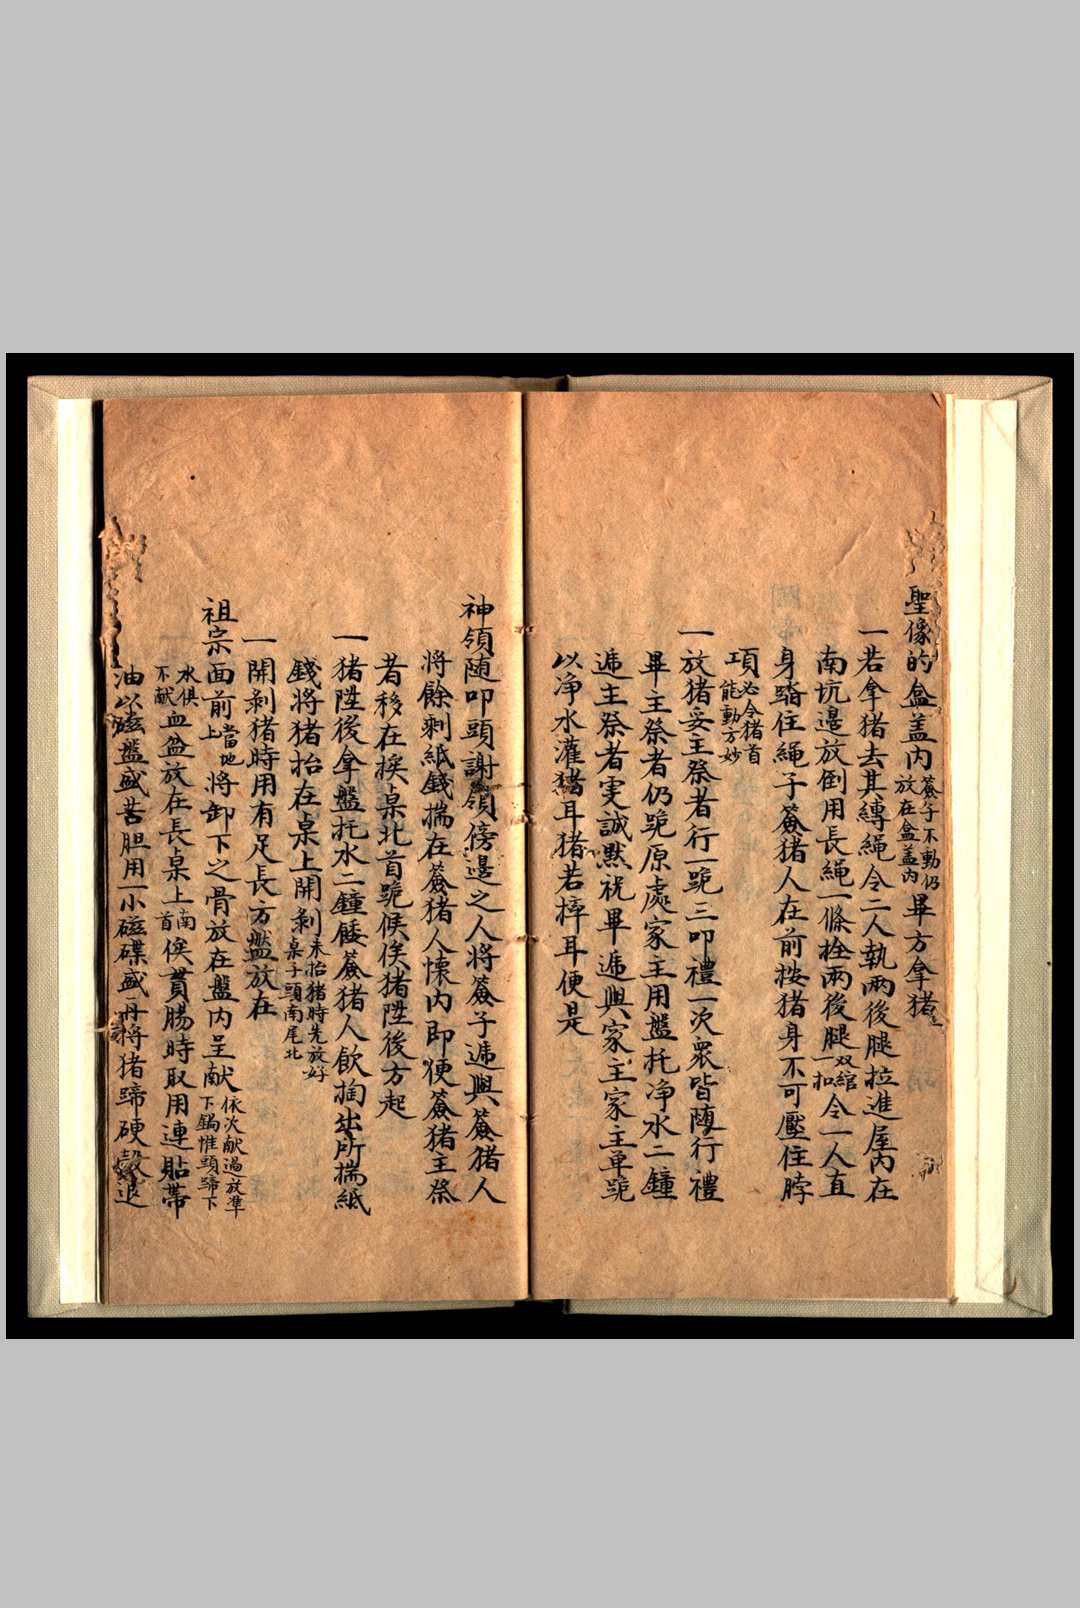 聖像的盒盖内簽子不動仍放在盒盖内畢方拿猪
一若拿猪去其縛繩令二人執兩後腿拉進屋内在
南坑邉放倒用長繩一條拴兩後腿双綰一扣令一人直
身踏住繩子簽猪人在前按猪身不可壓住脖
項必令猪首能動方妙
一放猪妥主祭者行一跪三叩禮一次衆皆随行禮
畢主祭者仍跪原處家主用盤托净水二鐘
逓主祭者虔誠默祝畢逓與家主家主单跪
以净水灌猪耳猪若摔耳便是
神領随叩頭謝領傍邉之人将簽子逓與簽猪人
将餘剩紙錢揣在簽猪人懐内即便簽猪主祭
者移在挨桌北首跪候俟猪陞後方起
一猪陞後拿盤托水二鐘餧簽猪人飲掏出所揣紙
錢将猪抬在桌上開剥未抬猪時先放好桌子頭南尾北
一開剥猪時用有足長方盤放在
祖宗面前當地上将卸下之骨放在盤内呈献依次献過放準下鍋惟頭蹄下
水俱不献血盆放在長桌上南首俟貫腸時取用連貼帶
油以磁盤盛苦胆用一小磁碟盛再将猪蹄硬殼退